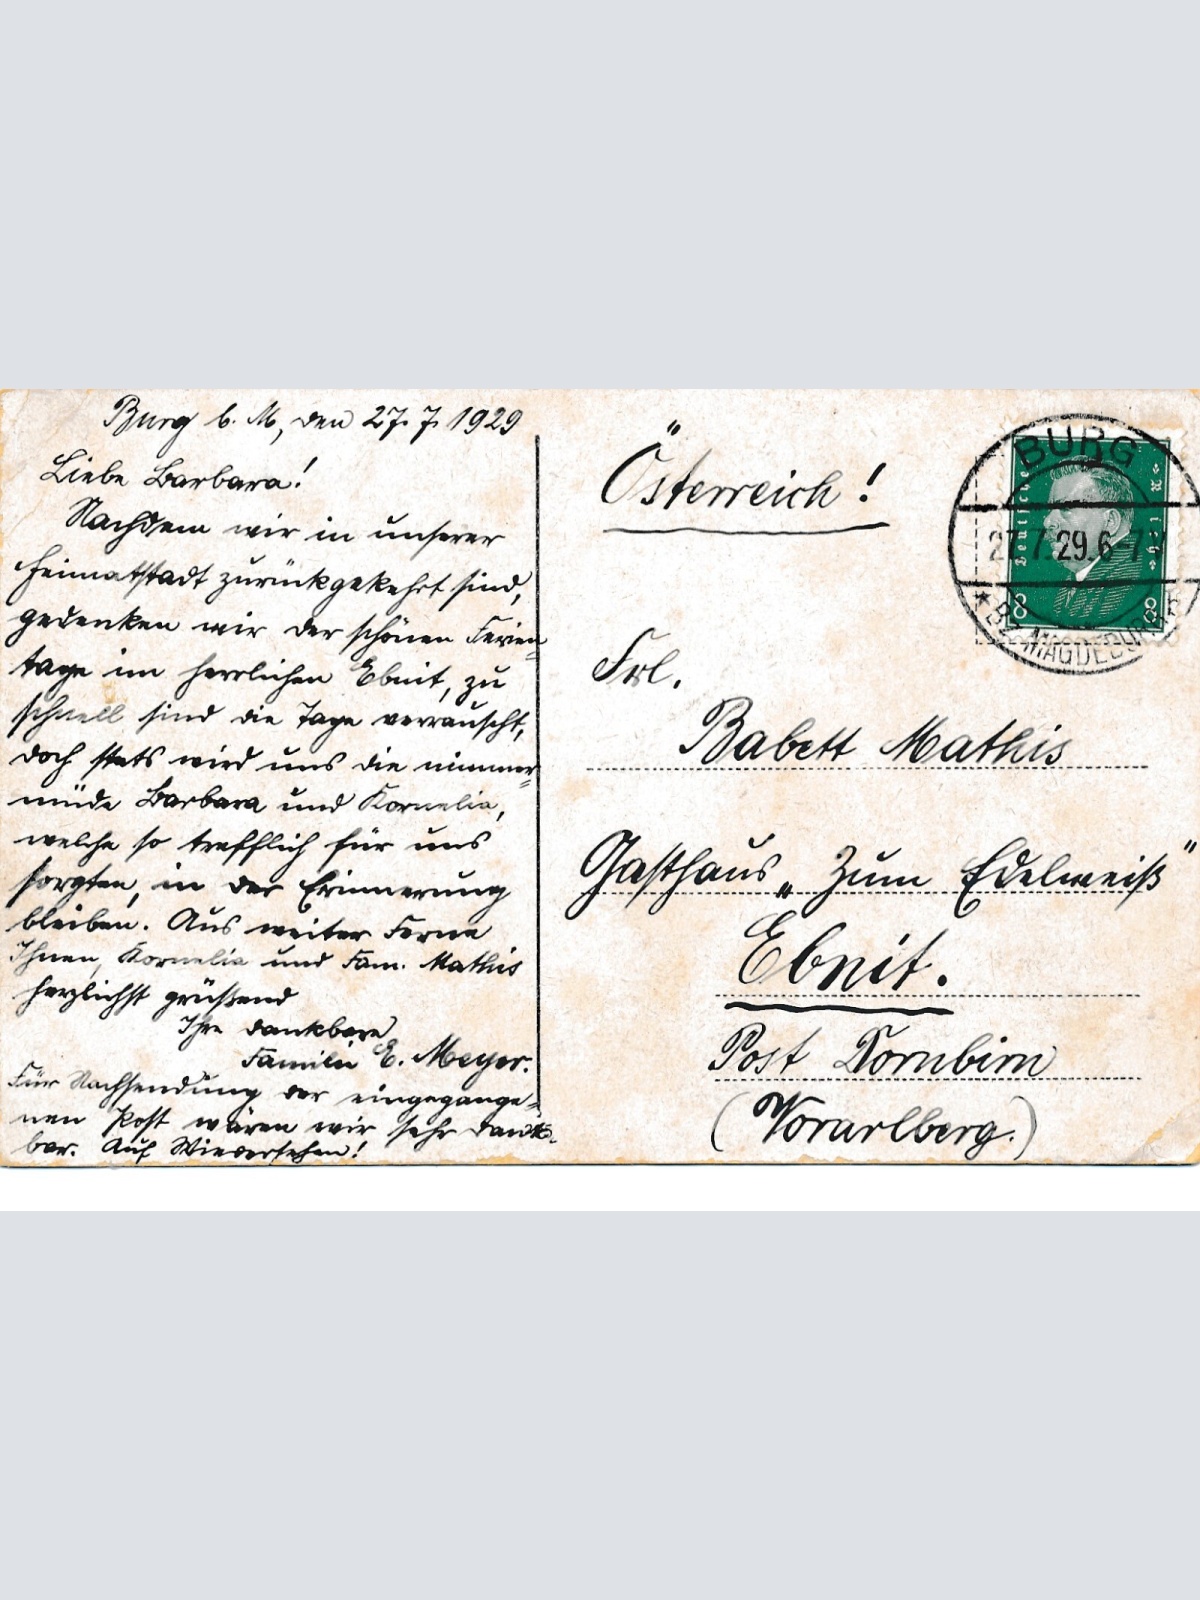 Burg b. M, den 27.7.1929
Liebe Barbara!
Nachdem wir in unserer
Heimatstadt zurückgekehrt sind,
gedenken wir der schönen Ferien-
tage im herrlichen Ebnit, zu
schnell sind die Tage verrauscht,
doch stets wird uns die nimmer-
müde Barbara und Kornelia,
welche so trefflich für uns
sorgten, in der Erinnerung
bleiben. Aus weiter Ferne
Ihnen, Kornelia und Fam. Mathis
herzlichst grüßend
Ihre dankbare
Familie E. Meyer.
Für Nachsendung der eingegange-
nen Post wären wir sehr dank-
bar. Auf Wiedersehen!
Österreich!
Frl.
Babett Mathis
Gasthaus „Zum Edelweiß"
Ebnit.
Post Dornbirn
(Vorarlberg.)
BURG
27.7.29.6-7
* BZ. MAGDEBURG
Deutsches Reich
8 8